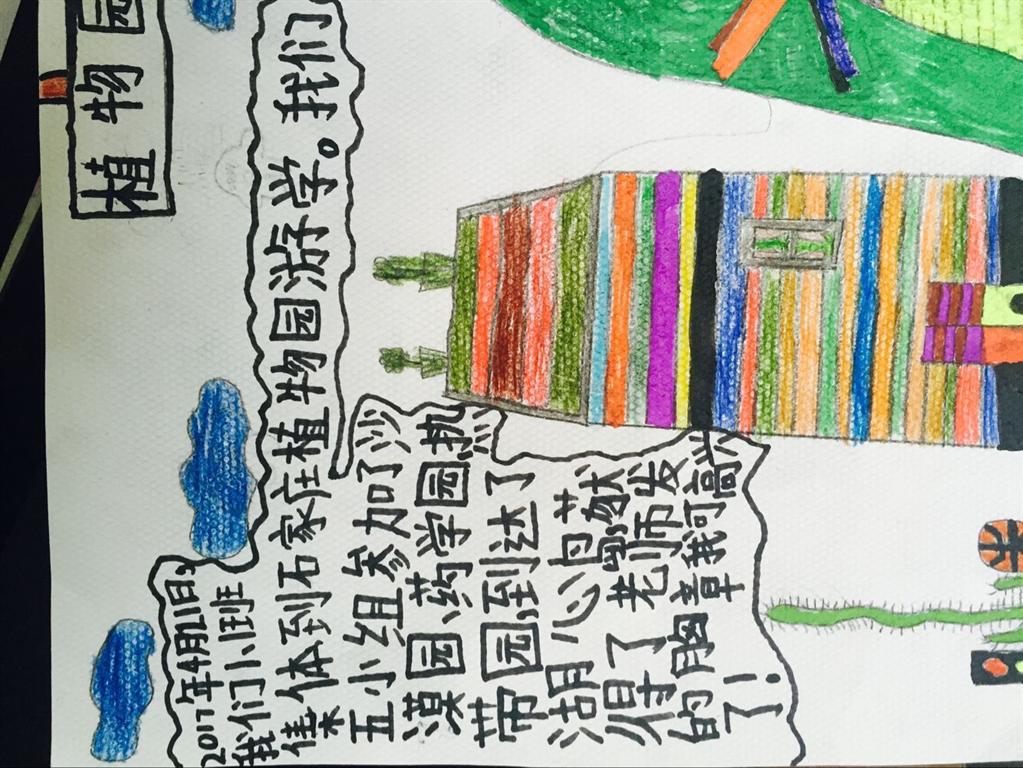 植物园
2017年4月21日，
我们小1班
集体到石家庄植物园游学。我们
五小组参加了沙
漠园、药学园、热
带园，到达了
湖心岛，获
得了老师发
的胸章我可高兴
了！